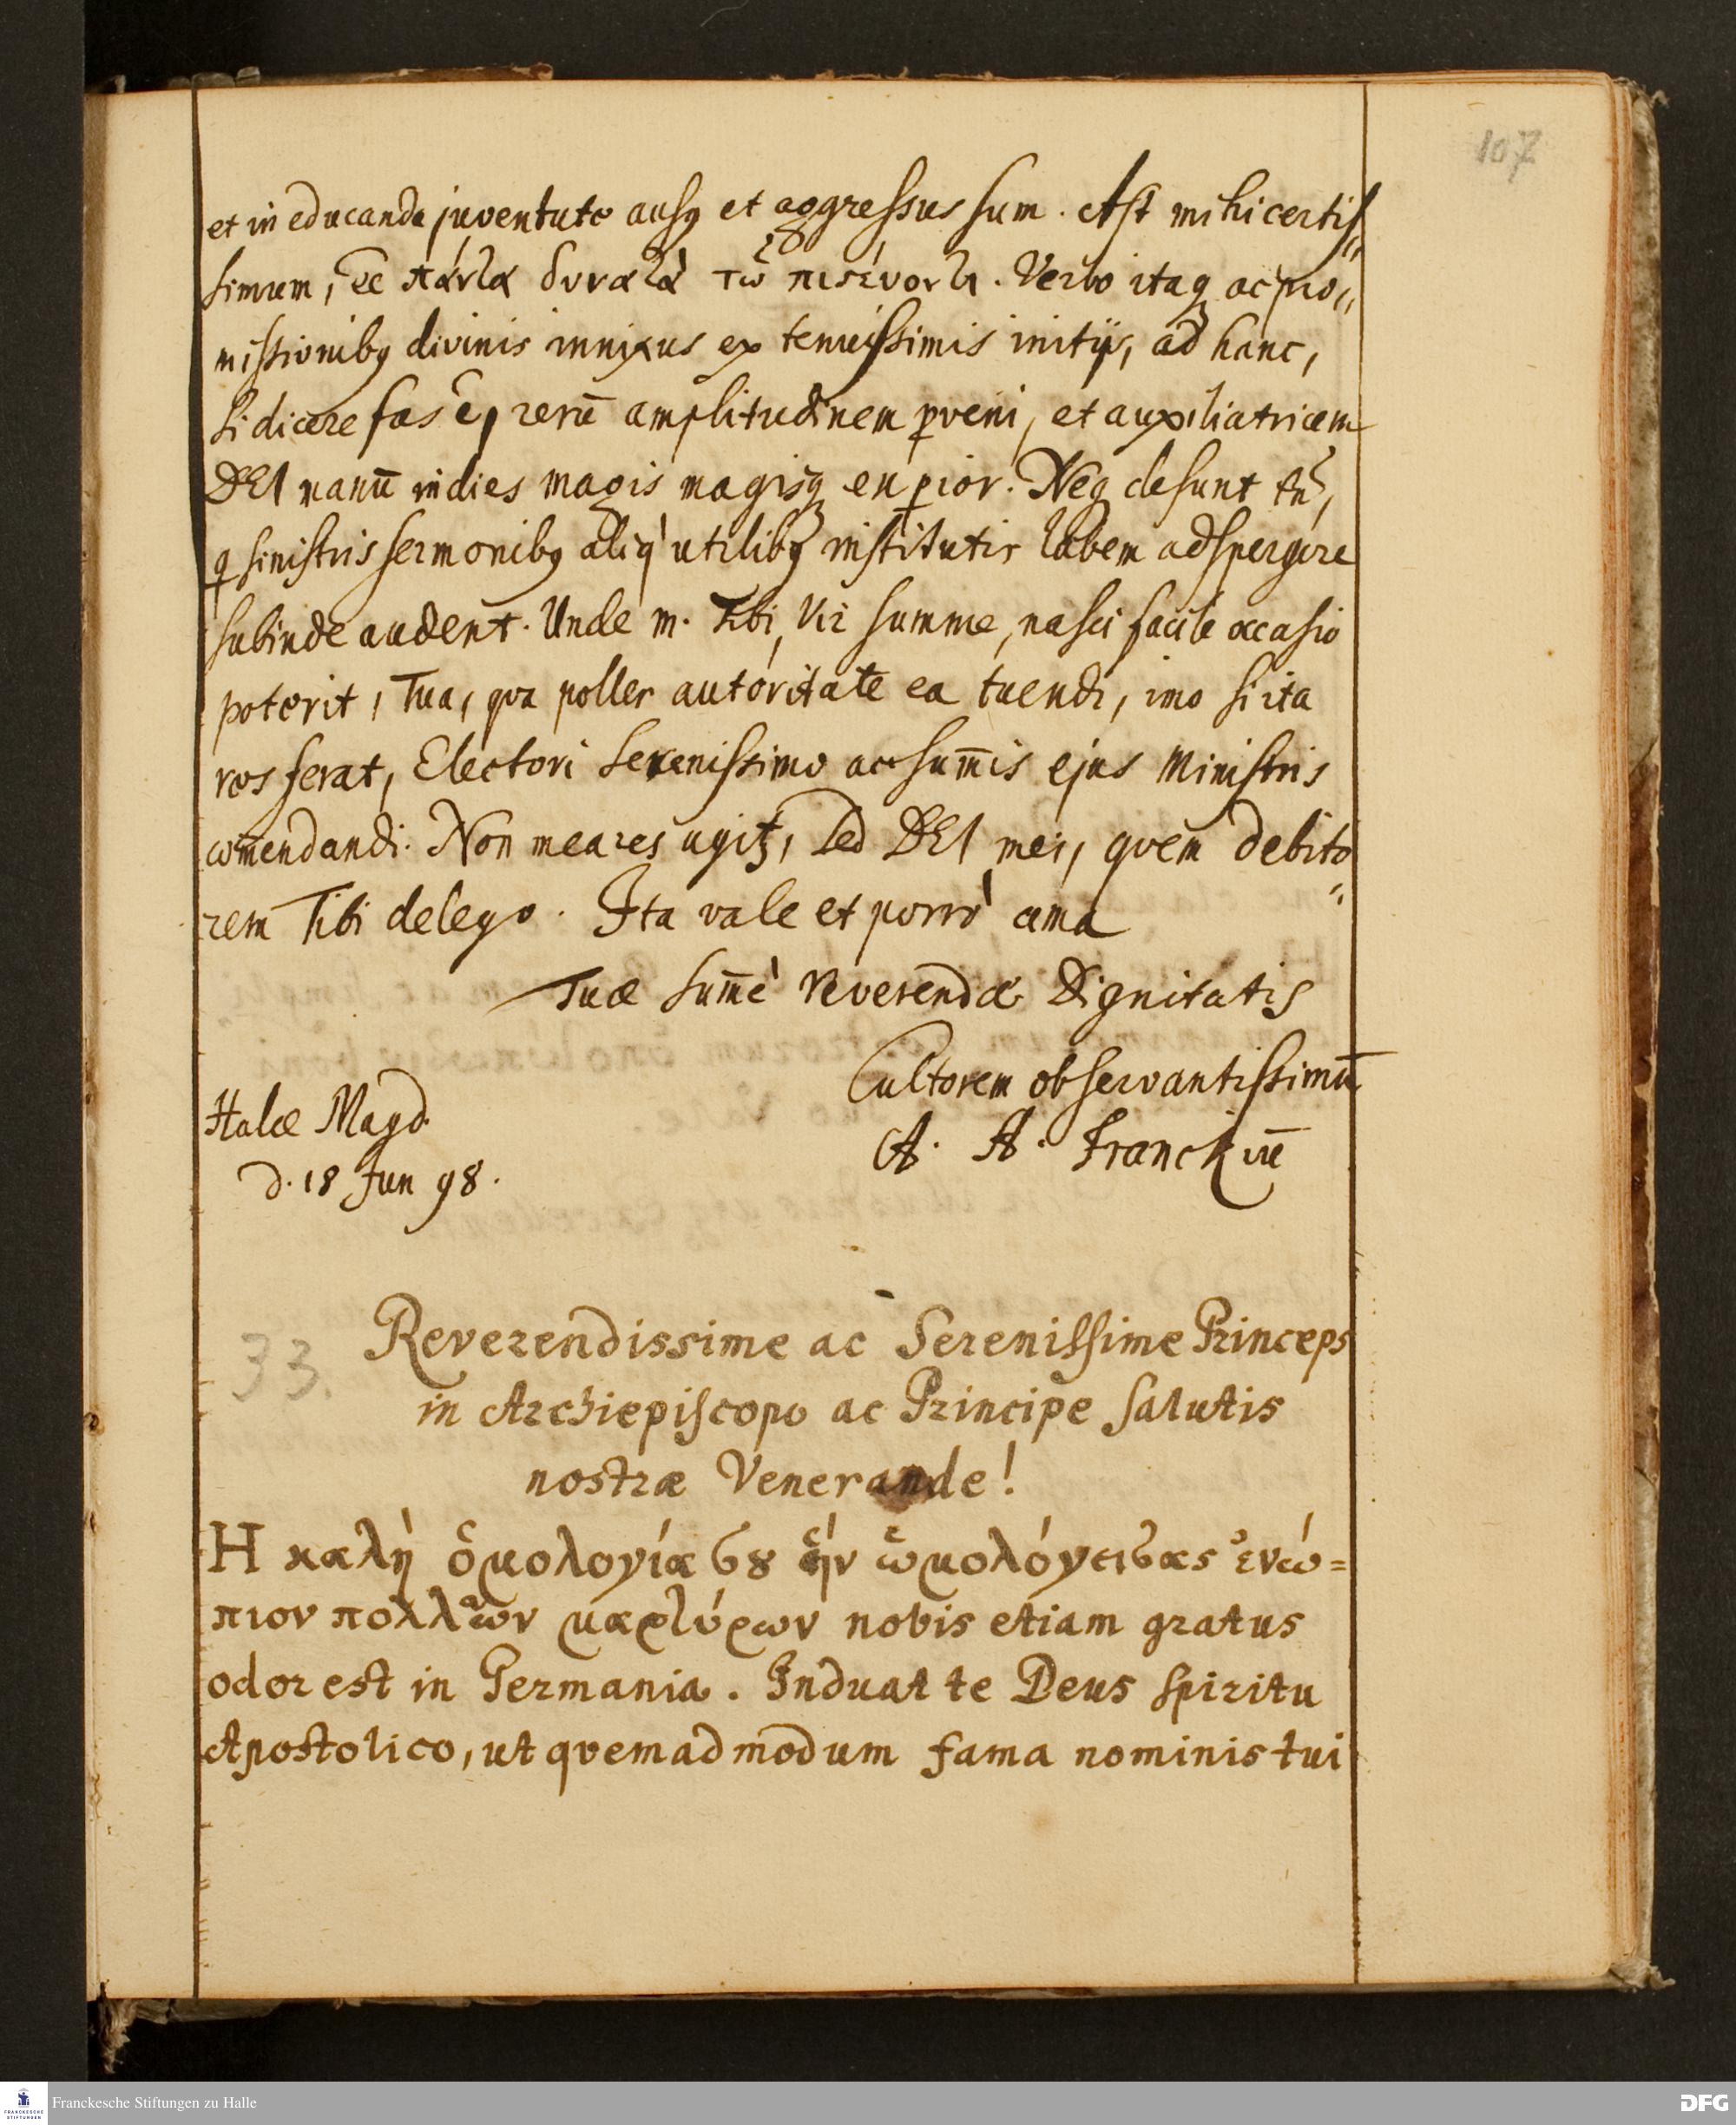 107
et in educanda juventute ausꝯ et aggressus sum. Ast mihi certis⸗
simum, ee͂ πάντα δυνατὰ τῶ πιστέυοντι. Verbo itaqꝫ ac pro⸗
missionibꝯ divinis innixus ex tenuissimis initijs, ad hanc,
si dicere fas ē, rerū amplitudinem ꝑveni, et auxiliatricem
DEI manū indies magis magisqꝫ exꝑior. Neqꝫ desunt tn̄,
q sinistris sermonibꝯ aliq̀ utilibꝯ institutis labem adspergere
subinde audent. Unde m. Tibi, Vir summe, nasci facile occasio
poterit, Tua, qva polles autoritate ea tuendi, imo si ita
res ferat, Electori Serenissimo ac sum̄is ejus Ministris
com̄endandi. Non mea res agit⁊, sed DEI mei, qvem debito⸗
rem Tibi delego. Ita vale et porrò ama
Tuæ sum̄è Reverendæ Dignitatis
Cultorem observantissimū
A. H. Franckiū
Halæ Magd.
d. 18 Jun 98.
33. Reverendissime ac Serenissime Princeps
in Archiepiscopo ac Principe salutis
nostræ Venerande!
Η καλὴ ὁμολογία σȣ ἣν ὡμολόγεισας ἐνώ⸗
πιον πολλῶν μαρτύρων nobis etiam gratus
odor est in Germania. Induat te Deus spiritu
Apostolico, ut qvemadmodum fama nominis tui
Franckesche Stiftungen zu Halle
DFG